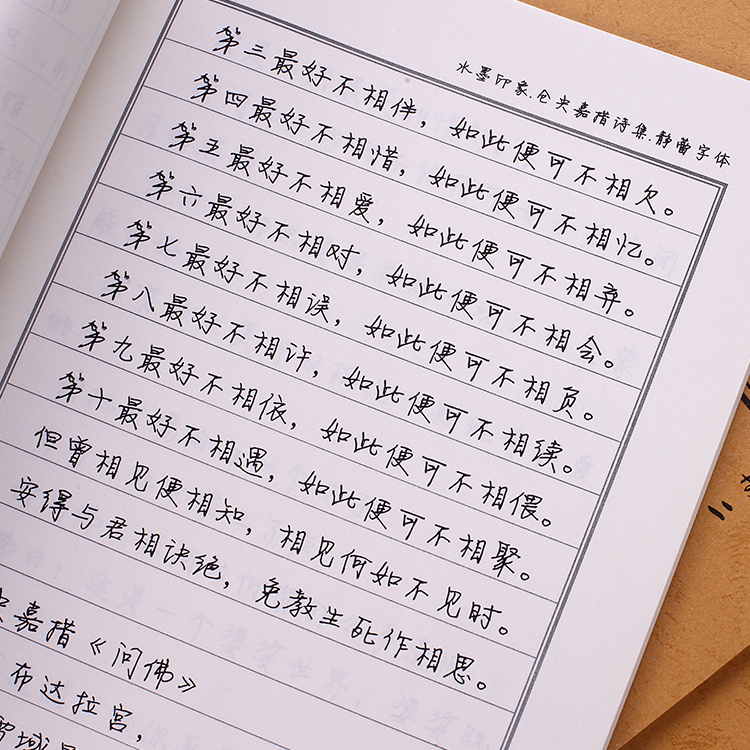 水墨印象.仓央嘉措诗集.静蕾字体
第三最好不相伴，如此便可不相欠。
第四最好不相惜，如此便可不相忆。
第五最好不相爱，如此便可不相弃。
第六最好不相对，如此便可不相会。
第七最好不相误，如此便可不相负。
第八最好不相许，如此便可不相续。
第九最好不相依，如此便可不相偎。
第十最好不相遇，如此便可不相聚。
但曾相见便相知，相见何如不见时。
安得与君相诀绝，免教生死作相思。
央嘉措《问佛》
布达拉宫，
域